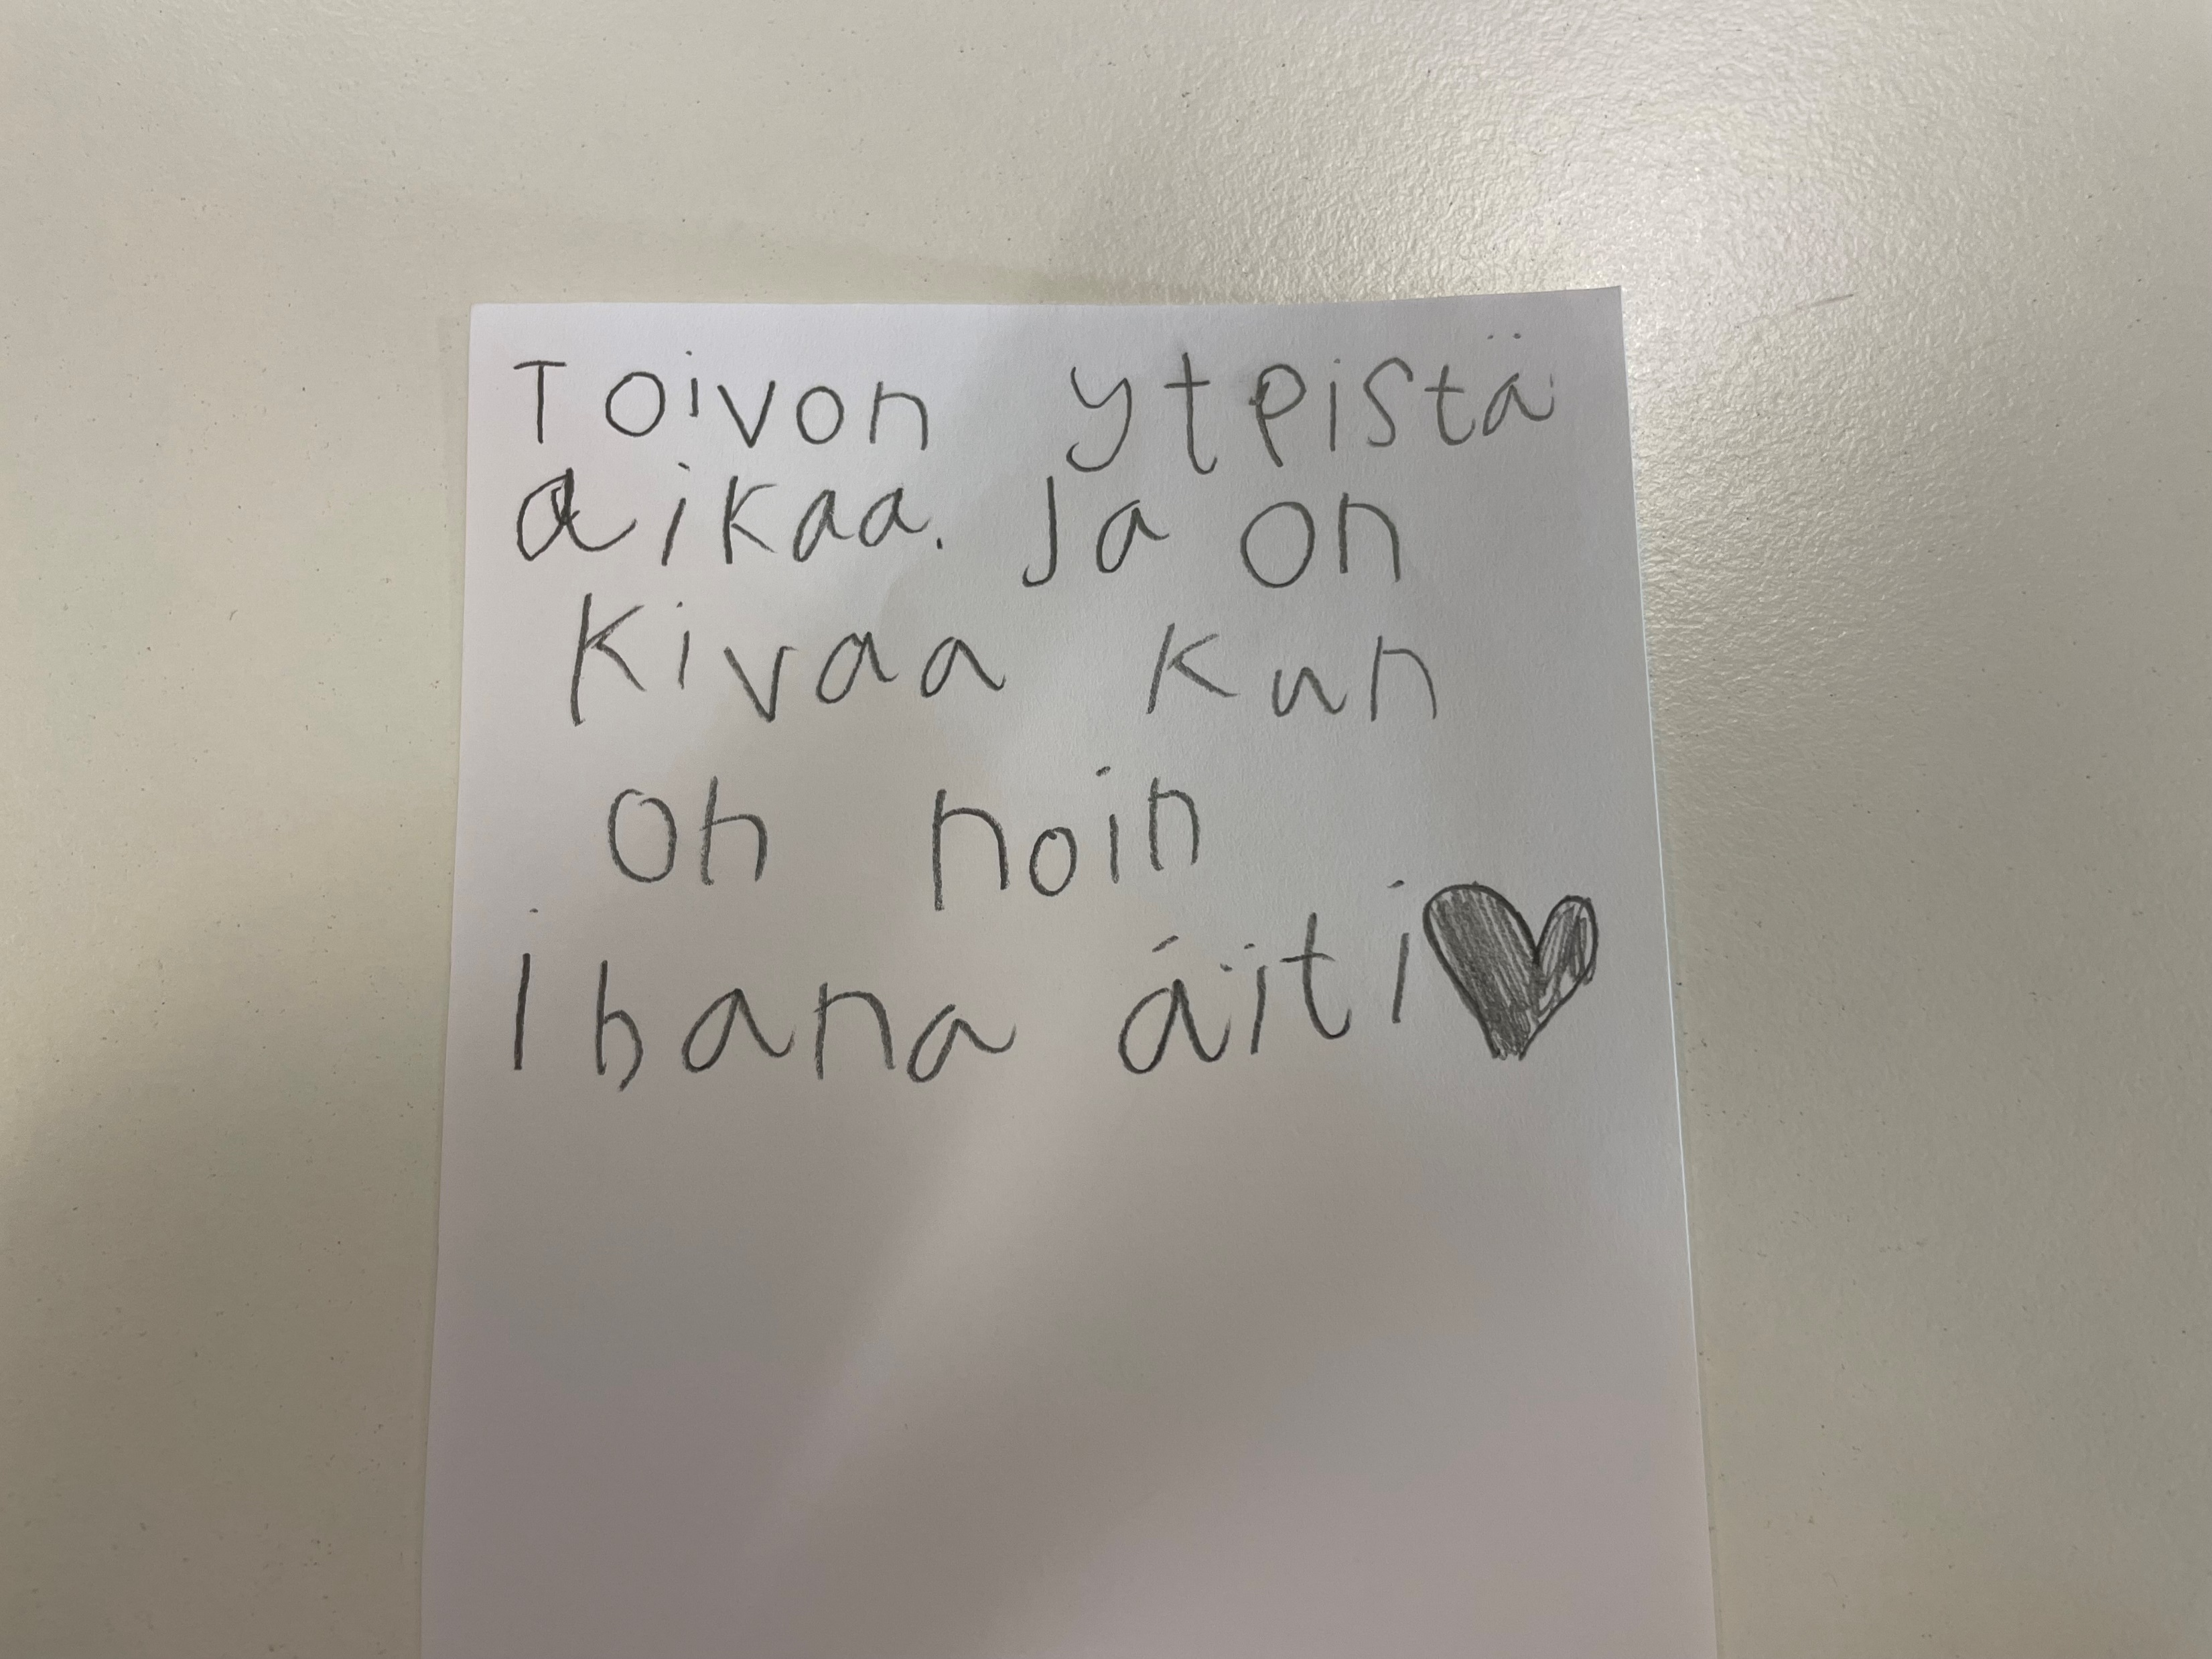 Toivon yteistä
aikaa. Ja on
Kivaa kun
on noin
ihana äiti